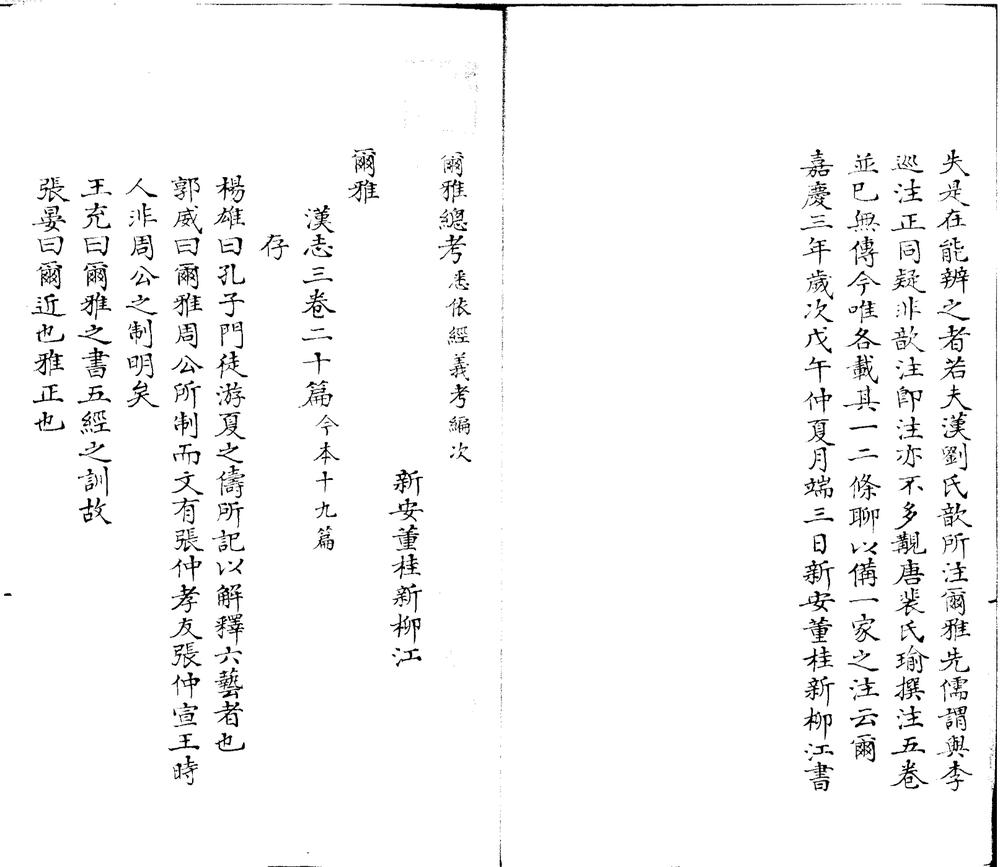 失是在能辨之者若夫漢劉氏歆所注爾雅先儒謂與李
巡注正同疑非歆注卽注亦不多覯唐裴氏瑜撰注五卷
並已無傳今唯各載其一二條聊以備一家之注云爾
嘉慶三年歲次戊午仲夏月端三日新安董桂新柳江書
爾雅總考悉依經義考編次
新安董桂新柳江
爾雅
漢志三卷二十篇今本十九篇
存
楊雄曰孔子門徒游夏之儔所記以解釋六藝者也
郭威曰爾雅周公所制而文有張仲孝友張仲宣王時
人非周公之制明矣
王充曰爾雅之書五經之訓故
張晏曰爾近也雅正也